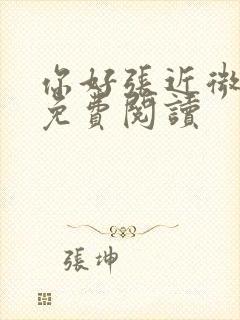 你好張近微
免費閱讀
張坤